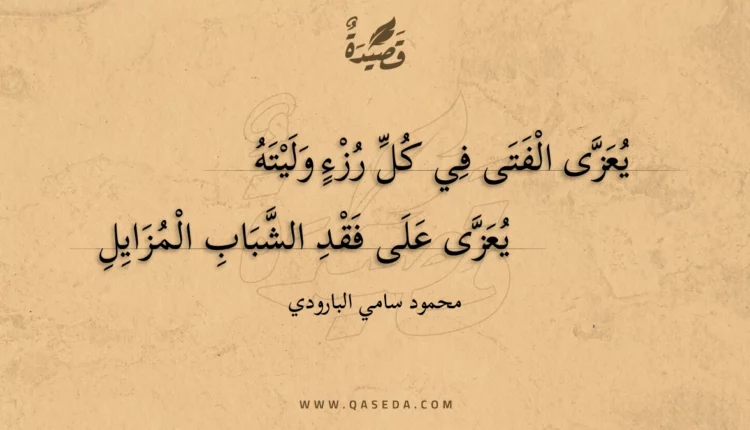 قَصِيْدَةٌ
يُعَزَّى الْفَتَى فِي كُلِّ رُزْءٍ وَلَيْتَهُ
يُعَزَّى عَلَى فَقْدِ الشَّبَابِ الْمُزَايِلِ
محمود سامي البارودي
WWW.QASEDA.COM